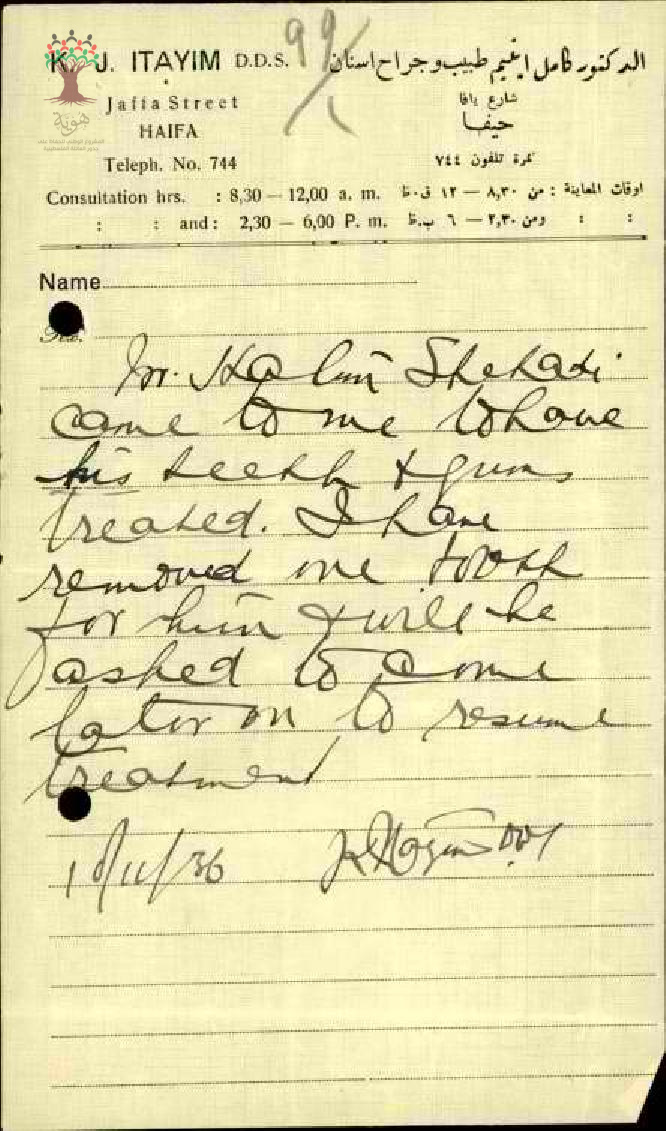 99/1
K. J. ITAYIM D.D.S.
الدكتور كامل ايتيم طبيب وجراح اسنان
Jaffa Street
شارع يافا
HAIFA
حيفا
Teleph. No. 744
نمرة تلفون ٧٤٤
Consultation hrs. : 8,30 — 12,00 a. m.
اوقات المعاينة : من ٨،٣٠ — ١٢ ق.ظ
: : and : 2,30 — 6,00 P. m.
: : ومن ٢،٣٠ — ٦ ب.ظ
هوية
Name
Mr. Halim Shehadi
came to me to have
his teeth & gums
treated. I have
removed one tooth
for him & will be
asked to come
later on to resume
treatment
10/11/36
K J Itayim DDS